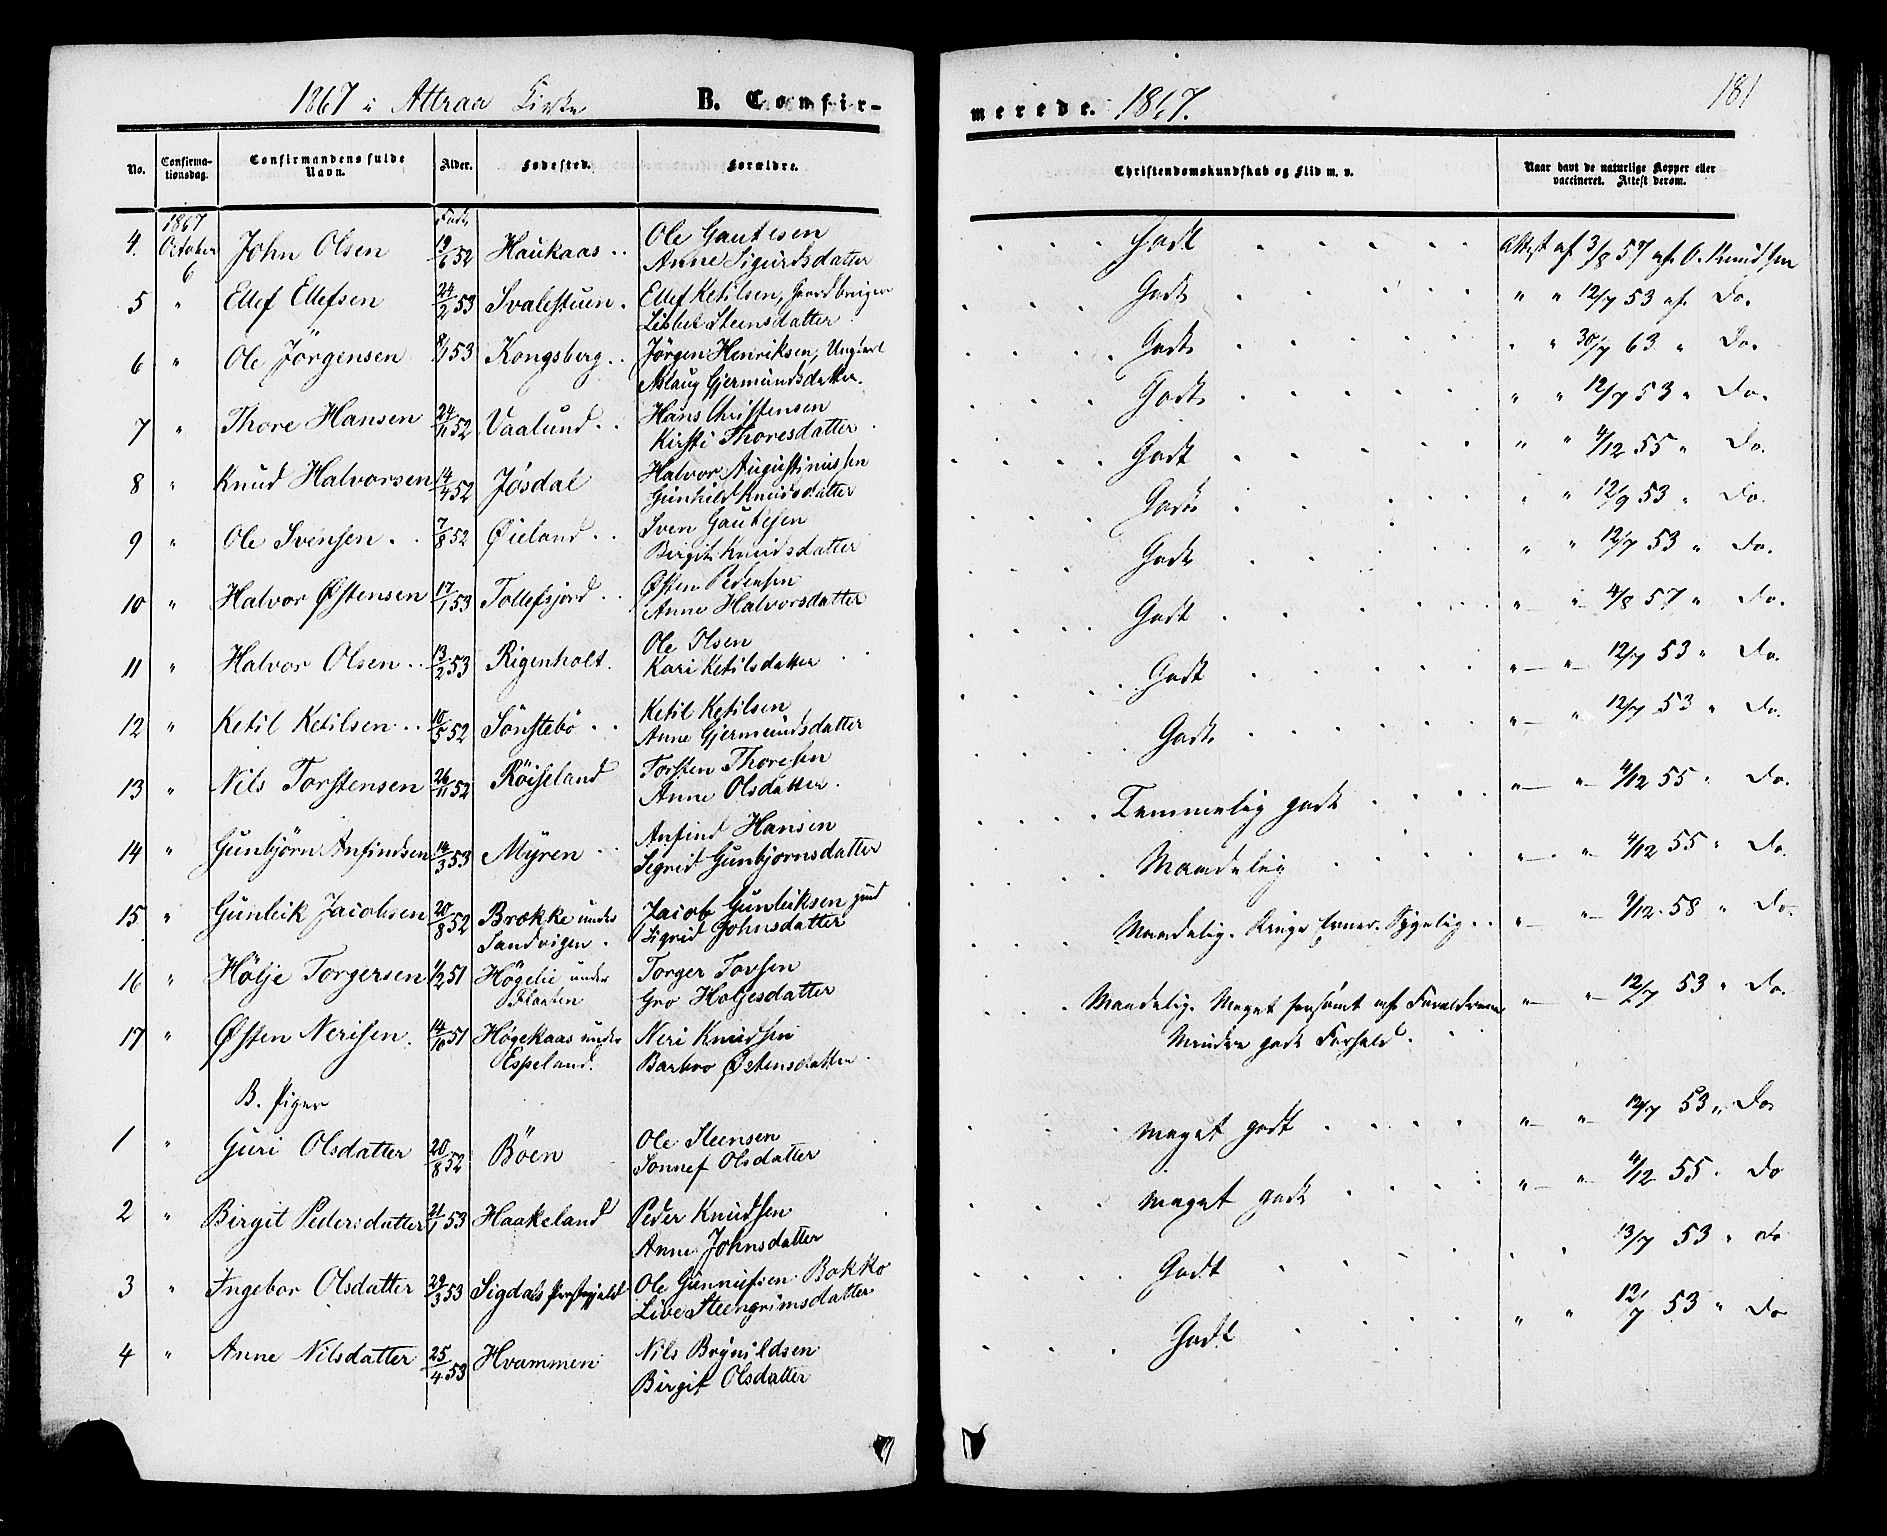 1867 i Attraa Kirke B. Confir-
merede. 1867. 181
No. Confirma-tionsdag. Confirmandens fulde Navn. Alder. Fødested. Forældre.
Christendomskundskab og Flid m. v. Naar havt de naturlige Kopper eller vaccineret. Attest derom.
4. 1867 October 6 John Olsen Født 19/6 52 Haukaas Ole Gautesen
Anne Sigurdsdatter Godt Attest af 3/8 57 af O. Knudsen
5 " Ellef Ellefsen 24/2 53 Svalestuen Ellef Ketilsen, Gaardbruger
Lisbet Steensdatter Godt " " 12/7 53 af Do.
6 " Ole Jörgensen 8/1 53 Kongsberg Jörgen Henriksen, Ungkarl
Aslaug Gjermundsdatter. Godt " " 30/7 63 " Do.
7 " Thore Hansen 24/11 52 Vaalund Hans Christensen
Kirsti Thoresdatter Godt " " 12/7 53 " Do.
8 " Knud Halvorsen 14/4 52 Jösdal Halvor Augustinussen
Gunhild Knudsdatter Godt " " 4/12 55 " Do.
9 " Ole Svensen 7/8 52 Øieland Sven Gautesen
Birgit Knudsdatter Godt " " 12/9 53 " Do.
10 " Halvor Østensen 17/1 53 Tollefsjord Østen Pedersen
Anne Halvorsdatter Godt " " 12/7 53 " Do.
11 " Halvor Olsen 13/2 53 Rigenholt Ole Olsen
Kari Ketilsdatter Godt " " 4/8 57 " Do.
12 " Ketil Ketilsen 10/5 52 Sönstebö Ketil Ketilsen
Anne Gjermundsdatter Godt " " 12/7 53 " Do.
13 " Nils Torstensen 26/11 52 Röiseland Torsten Thoresen
Anne Olsdatter Godt " " 12/7 53 " Do.
14 " Gunbjörn Anfindsen 14/3 53 Myren Anfind Hansen
Sigrid Gunbjornsdatter Temmelig godt " " 4/12 55 " Do.
15 " Gunleik Jacobsen 20/8 52 Brække under
Sandvigen Jacob Gunleiksen
Sigrid Johnsdatter Maadelig " " 4/12 55 " Do.
16 " Hölje Torgersen 1/2 51 Högelie under
Flaaten Torger Tovsen
Gro Holjesdatter Maadelig. Ringe Evner. Sygelig " " 9/12 58 " Do.
17 " Østen Nerisen 14/10 51 Högekaas under
Espeland. Neri Knudsen
Barbro Østensdatter Maadelig. Meget forsömt af Forældrene
Mindre godt Forhold. " " 12/7 53 " Do.
B. Piger
1 " Guri Olsdatter 20/8 52 Böen Ole Steensen
Sonnef Olsdatter meget godt " " 12/7 53 " Do
2 " Birgit Pedersdatter 21/1 53 Haakeland Peder Knudsen
Anne Johnsdatter meget godt " " 4/12 55 Do
3 " Ingebor Olsdatter 29/3 53 Sigdals Præstegjeld Ole Gunnufsen Bakko
Live Steengrimsdatter Godt " " 13/7 53 " do
4 " Anne Nilsdatter 25/4 53 Hvammen Nils Bognildsen
Birgit Olsdatter Godt " " 12/7 53 " Do